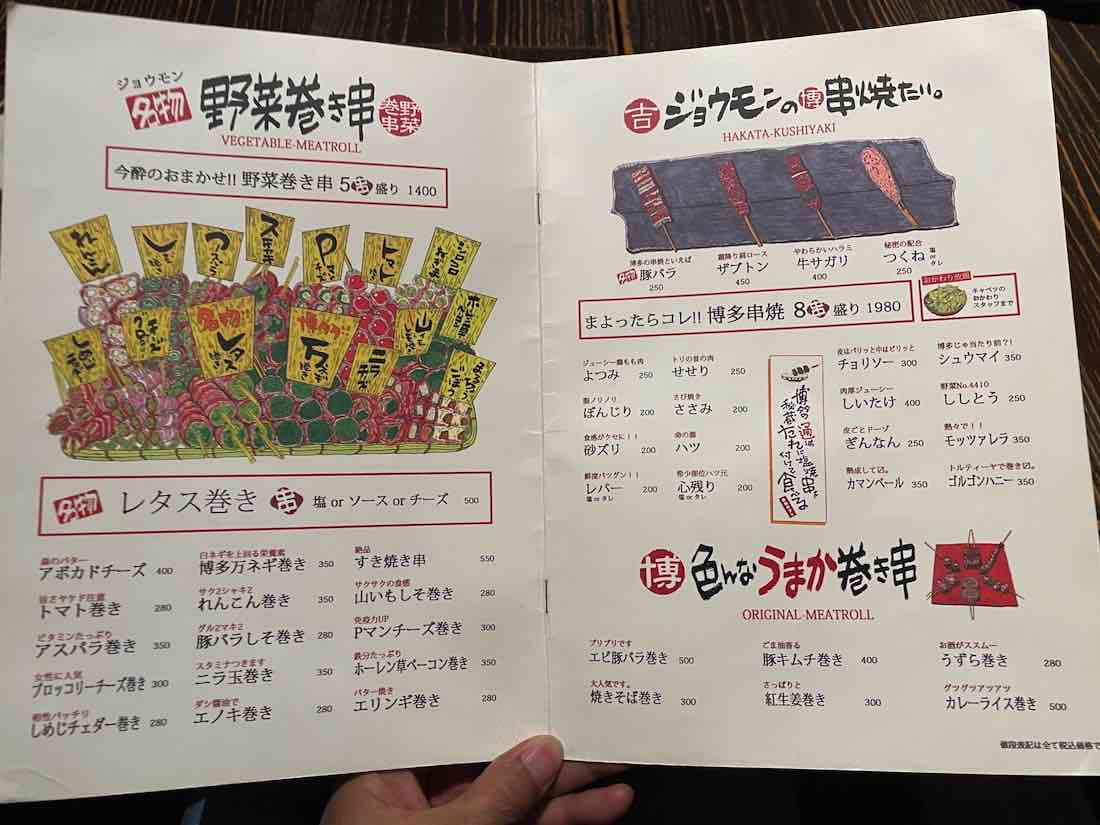 ジョウモン
名物 野菜巻き串 野菜巻串
VEGETABLE-MEATROLL
今酔のおまかせ!! 野菜巻き串 5串盛り 1400
れんこん
アスパラ
スキヤキ
Pマンチーズ
トマト巻き
名物 レタス巻き
博多 万ネギ巻き
ニラ玉
名物 レタス巻き 串 塩 or ソース or チーズ 500
森のバター
アボカドチーズ 400
皆さヤケド注意
トマト巻き 280
ビタミンたっぷり
アスパラ巻き 350
女性に人気
ブロッコリーチーズ巻き 300
相性バッチリ
しめじチェダー巻き 280
白ネギを上回る栄養素
博多万ネギ巻き 350
サク2シャキ2
れんこん巻き 350
グル2マキ2
豚バラしそ巻き 280
スタミナつきます
ニラ玉巻き 350
ダシ醤油で
エノキ巻き 280
絶品
すき焼き串 550
サクサクの食感
山いもしそ巻き 280
免疫力UP
Pマンチーズ巻き 300
鉄分たっぷり
ホーレン草ベーコン巻き 350
バター焼き
エリンギ巻き 280
吉 ジョウモンの博串焼たい。
HAKATA-KUSHIYAKI
博多の串焼といえば
名物 豚バラ
250
霜降り肩ロース
ザブトン
450
やわらかいハラミ
牛サガリ
400
秘密の配合
つくね 塩 or タレ
250
まよったらコレ!! 博多串焼 8串盛り 1980
おかわり放題
キャベツの
おかわり
スタッフまで
ジューシー鶏もも肉
よつみ 250
脂ノリノリ
ぼんじり 200
食感がクセに!!
砂ズリ 200
鮮度バツグン!!
レバー 200
塩 or タレ
トリの首の肉
せせり 250
さび焼き
ささみ 200
命の源
ハツ 200
希少部位ハツ元
心残り 200
塩 or タレ
博多の通は塩焼串を
秘蔵だれに付けて食べるよ
皮はパリッと中はピリッと
チョリソー 300
肉厚ジューシー
しいたけ 400
皮ごとドーゾ
ぎんなん 250
熟成して〼。
カマンベール 350
博多じゃ当たり前?!
シュウマイ 350
野菜No.4410
ししとう 250
熱々で!!
モッツァレラ 350
トルティーヤで巻き〼。
ゴルゴンハニー 350
博 色んなうまか巻き串
ORIGINAL-MEATROLL
プリプリです
エビ豚バラ巻き 500
大人気です。
焼きそば巻き 300
ごま油香る
豚キムチ巻き 400
さっぱりと
紅生姜巻き 300
お酒がススムー
うずら巻き 280
グツグツアツアツ
カレーライス巻き 500
値段表記は全て税込価格で